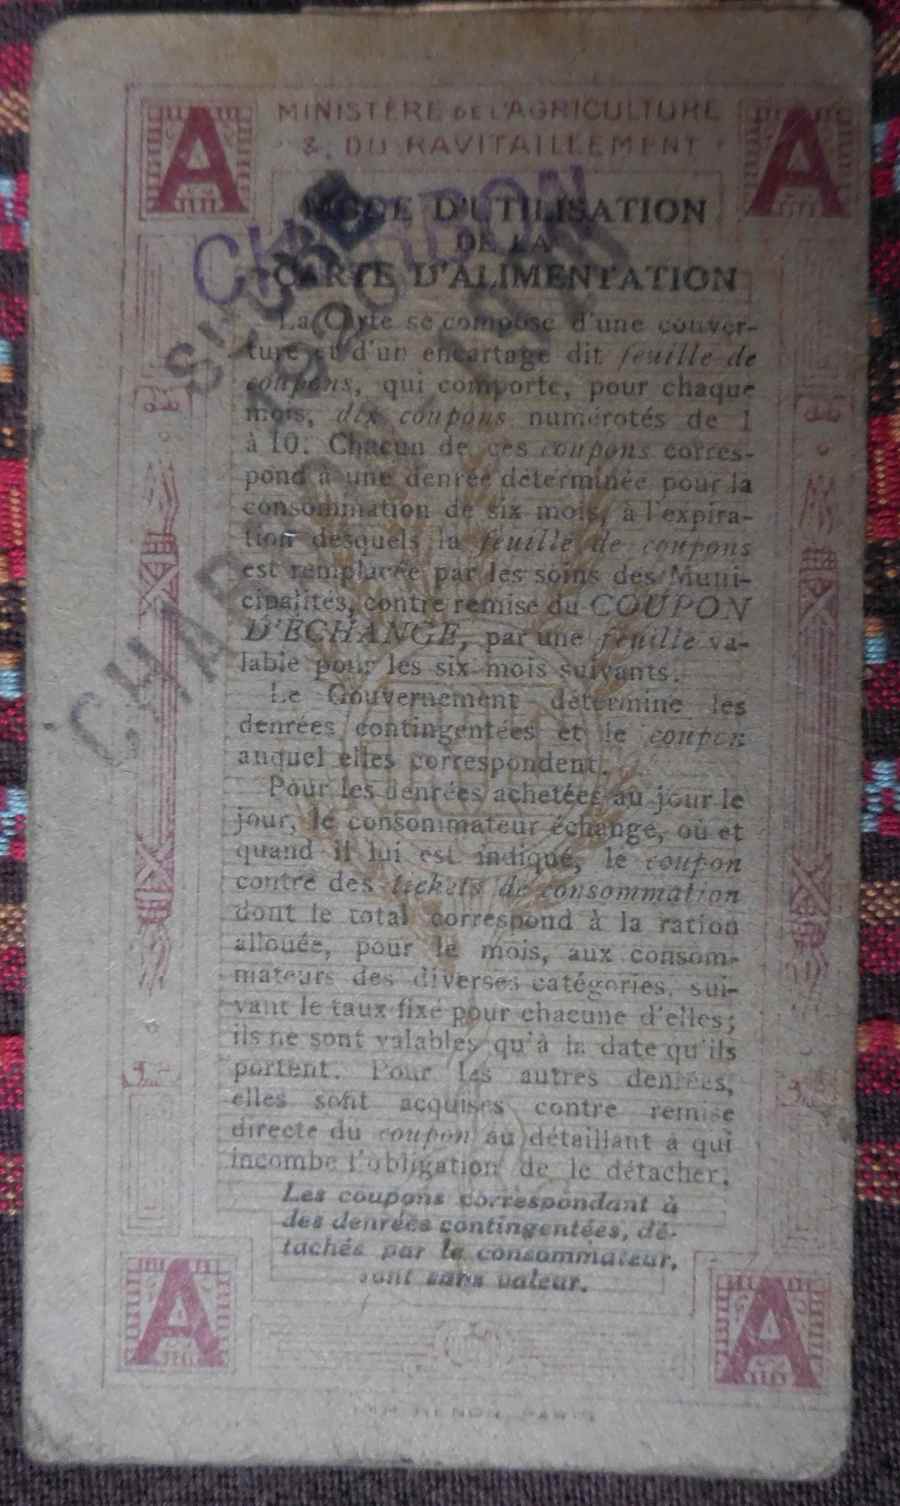 A A
MINISTÈRE DE L'AGRICULTURE
& DU RAVITAILLEMENT
MODE D'UTILISATION
DE LA
CARTE D'ALIMENTATION
CHARBON
SUCRE
1920
CHARBON 1920
La Carte se compose d'une couver-
ture et d'un encartage dit feuille de
coupons, qui comporte, pour chaque
mois, dix coupons numérotés de 1
à 10. Chacun de ces coupons corres-
pond à une denrée déterminée pour la
consommation de six mois, à l'expira-
tion desquels la feuille de coupons
est remplacée par les soins des Muni-
cipalités, contre remise du COUPON
D'ÉCHANGE, par une feuille va-
lable pour les six mois suivants.
Le Gouvernement détermine les
denrées contingentées et le coupon
auquel elles correspondent.
Pour les denrées achetées au jour le
jour, le consommateur échange, où et
quand il lui est indiqué, le coupon
contre des tickets de consommation
dont le total correspond à la ration
allouée, pour le mois, aux consom-
mateurs des diverses catégories, sui-
vant le taux fixé pour chacune d'elles;
ils ne sont valables qu'à la date qu'ils
portent. Pour les autres denrées,
elles sont acquises contre remise
directe du coupon au détaillant à qui
incombe l'obligation de le détacher.
Les coupons correspondant à
des denrées contingentées, dé-
tachés par le consommateur,
sont sans valeur.
A A
PARIS